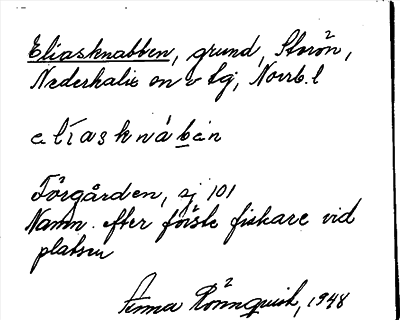 Eliasknabben, grund, Storön,
Nederkalix sn v lg, Norrb. l
elíasknábèn
Törgården, sj 101
Namn. efter förste fiskare vid
platsen
Anna Rönnquist, 1948